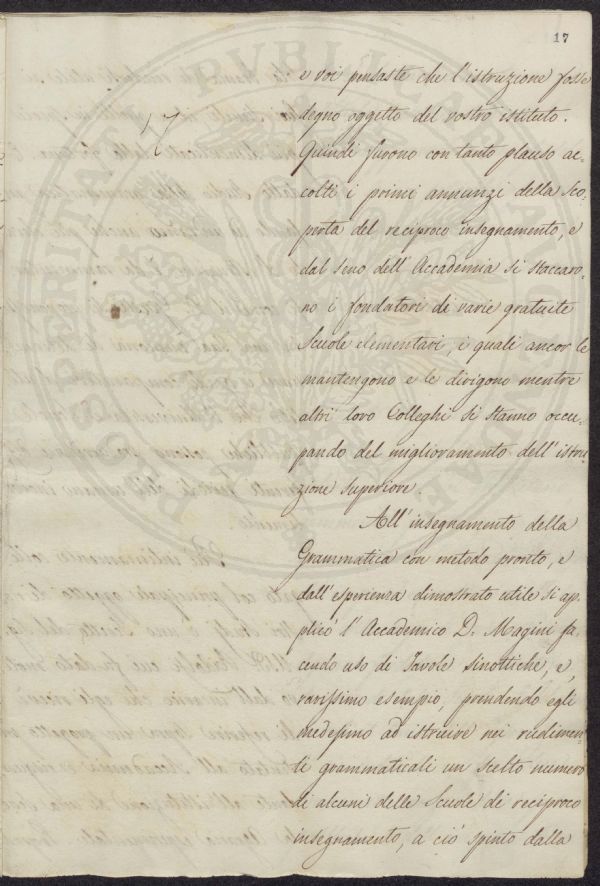 17
17
e voi pensaste che l'istruzione fosse
degno oggetto del vostro istituto.
Quindi furono con tanto plauso ac-
colti i primi annunzi della sco-
perta del reciproco insegnamento, e
dal seno dell'Accademia si staccaro-
no i fondatori di varie gratuite
Scuole elementari, i quali ancor le
mantengono e le dirigono mentre
altri loro Colleghi si stanno occu-
pando del miglioramento dell'istru-
zione superiore.
All'insegnamento della
Grammatica con metodo pronto, e
dall'esperienza dimostrato utile si ap-
plicò l'Accademico D. Magini fa-
cendo uso di Tavole sinottiche, e,
rarissimo esempio, prendendo egli
medesimo ad istruire nei rudimen-
ti grammaticali un scelto numero
di alcuni delle Scuole di reciproco
insegnamento, a ciò spinto dalla